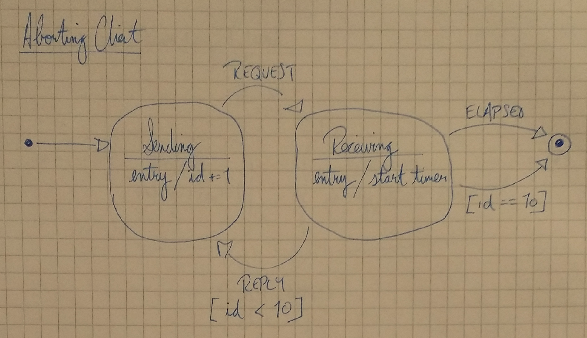 Aborting Client
REQUEST
ELAPSED
Sending
entry / id += 1
Receiving
entry / start timer
[id == 10]
REPLY
[id < 10]